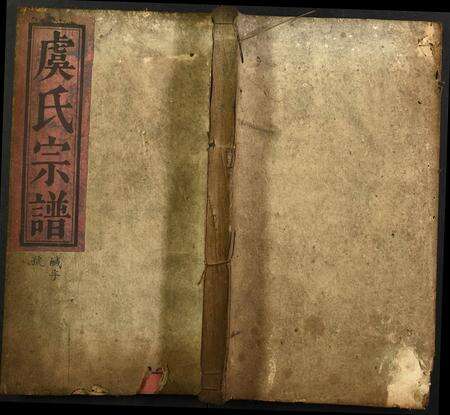 虞氏宗譜
鹹字
號